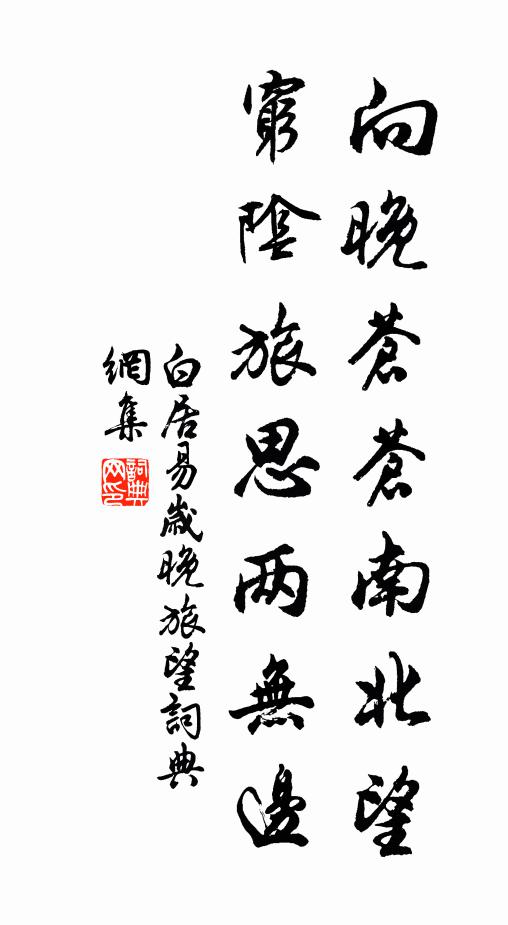 向晚蒼蒼南北望
窮陰旅思兩無邊
白居易歲晚旅望詞典
網集
詞典网印